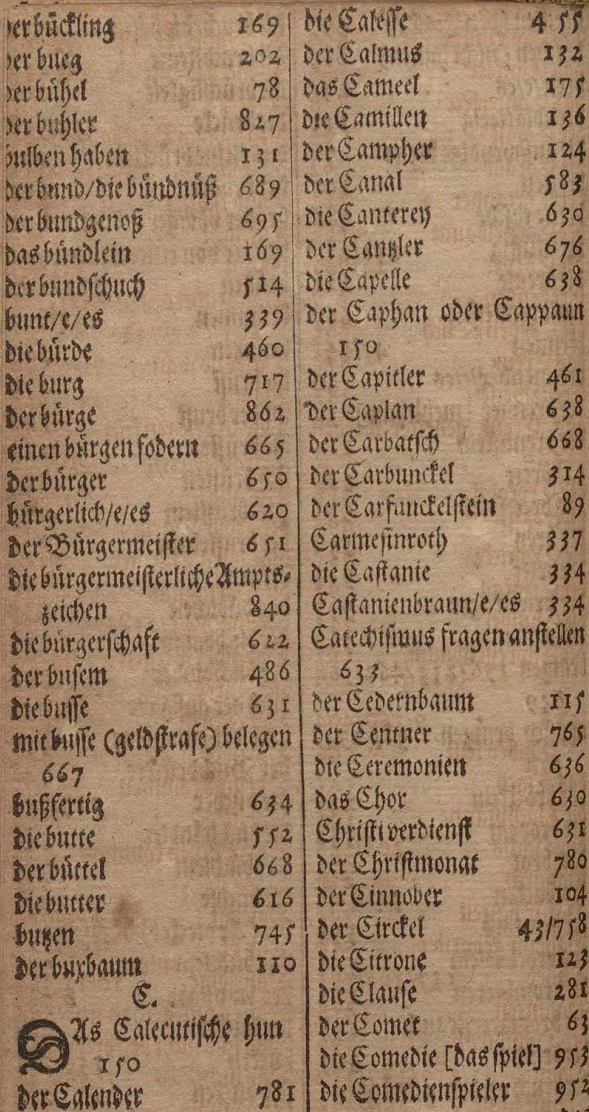 der bückling 169
der bueg 202
der bühel 78
der buhler 827
bulben haben 131
der bund/die bündnüß 689
der bundgenoß 695
das bündlein 169
der bundschuch 514
bunt/e/es 339
die bürde 460
die burg 717
der bürge 862
einen bürgen fodern 665
der bürger 650
bürgerlich/e/es 620
der Bürgermeister 651
die bürgermeisterliche Ampts-
zeichen 840
die bürgerschaft 622
der busem 486
die busse 631
mit busse (geldstrafe) belegen
667
bußfertig 634
die butte 552
der büttel 668
die butter 616
butzen 745
der buxbaum 110
C.
DAs Calecutische hun
150
der Calender 781
die Calesse 455
der Calmus 132
das Cameel 175
die Camillen 136
der Campher 124
der Canal 583
die Canterey 630
der Cantzler 676
die Capelle 638
der Caphan oder Cappaun
150
der Capitler 461
der Caplan 638
der Carbatsch 668
der Carbunckel 314
der Carfunckelstein 89
Carmesinroth 337
die Castanie 334
Castanienbraun/e/es 334
Catechismus fragen anstellen
633
der Cedernbaum 115
der Centner 765
die Ceremonien 636
das Chor 630
Christi verdienst 631
der Christmonat 780
der Cinnober 104
der Circkel 43/758
die Citrone 123
die Clause 281
der Comet 63
die Comedie [das spiel] 953
die Comedienspieler 952